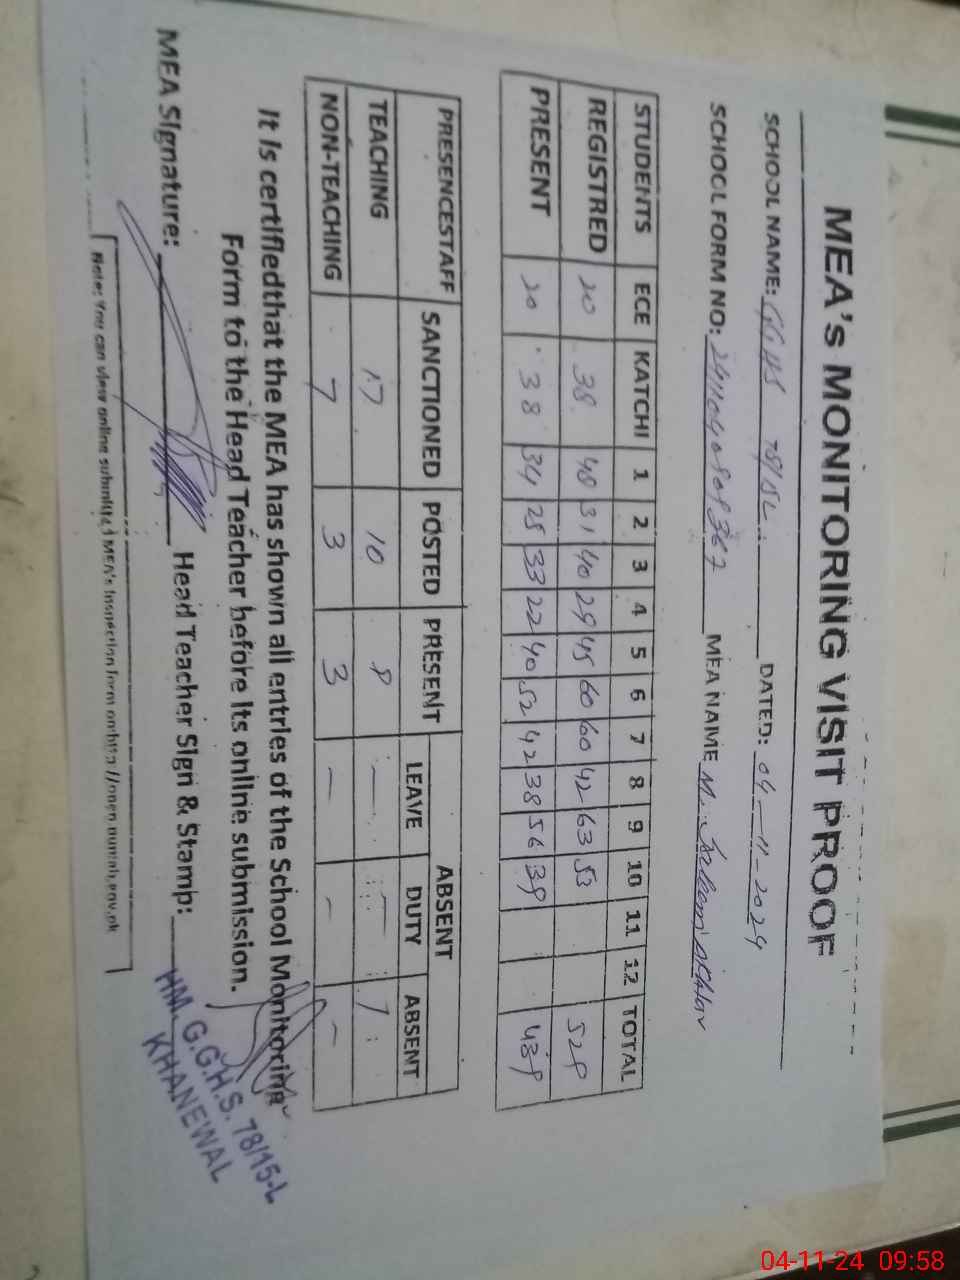 MEA's MONITORING VISIT PROOF
SCHOOL NAME: GGHS 78/15L DATED: 04-11-2024
SCHOOL FORM NO: MEA NAME M.
STUDENTS ECE KATCHI 1 2 3 4 5 6 7 8 9 10 11 12 TOTAL
REGISTRED 20 38 48 31 40 29 45 60 60 42 63 53 529
PRESENT 20 38 34 25 33 22 40 52 42 38 56 39 439
PRESENCESTAFF SANCTIONED POSTED PRESENT ABSENT
LEAVE DUTY ABSENT
TEACHING 17 10 8 — —
NON-TEACHING 7 3 3 — — —
It is certifiedthat the MEA has shown all entries of the School Monitoring
Form to the Head Teacher before its online submission.
MEA Signature: Head Teacher Sign & Stamp:
HM. G.G.H.S. 78/15-L
KHANEWAL
Note: You can view online submitted MEA's Inspection form on
04-11-24 09:58